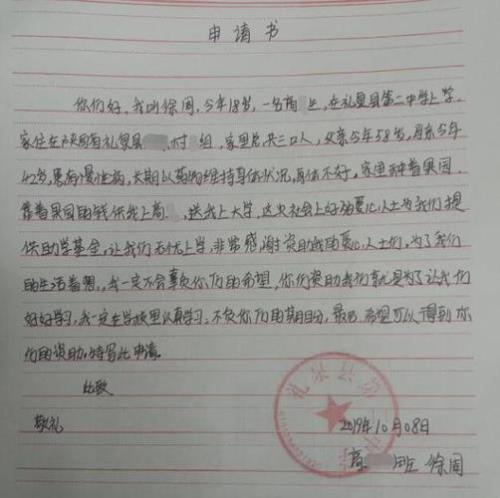 申请书
你们好,我叫徐周,今年18岁,一名高 生,在礼泉县第二中学上学,
家住在陕西省礼泉县 村 组,家里总共三口人,父亲今年58岁,母亲今年
42岁,患有慢性病,长期以药物维持身体状况,身体不好,家里种着果园,
靠着果园的钱供我上高 ,送我上大学,这次社会上好多爱心人士为我们提
供助学基金,让我们无忧上学,非常感谢资助我的爱心人士们,为了我们
的生活着想,我一定不会辜负你们的希望,你们资助我们就是为了让我们
好好学习,我一定在学校里认真学习,不负你们的期盼,最后,希望可以得到你
们的资助,特写此申请。
此致
敬礼
礼泉县第二中学
2019年10月08日
高 班 徐周